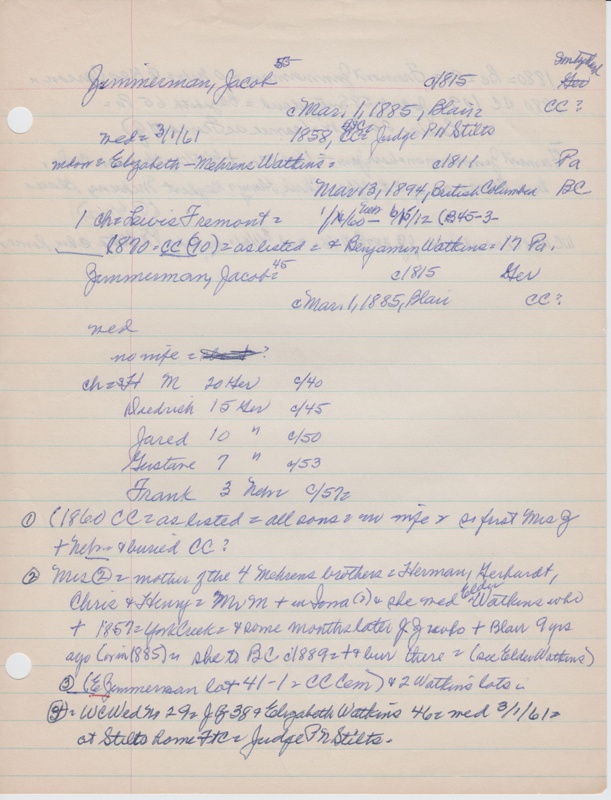 Zimmerman, Jacob 55 c/1815 Ger
c Mar. 1, 1885, Blair= CC?
med= 3/1/61 1858, CC= Judge P N Stilts
= Elizabeth - Mehrens Watkins= c1811 Pa
Mar 13, 1894, British Columbia BC
1 ch= Lewis Fremont = 1/14/60 Nebr- /15/12 (B45-3-
(1870-CC (90)= as listed= & Benjamin Watkins= 17 Pa.
Zimmerman, Jacob= 45 c/1815 Ger
c Mar. 1, 1885, Blair CC?
med
no wife = ?
ch= 3 H M 20 Ger c/40
Diedrich 15 Ger c/45
Jared 10 " c/50
Gustave 7 " c/53
Frank 3 Nebr c/57=
① (1860 CC= as listed= all sons= no wife & so first Mrs Z
+ Nebr- & buried CC?
② Mrs ②= mother of the 4 Mehrens brothers= Herman, Gerhardt,
Chris & Henry= Mr M + in Iowa (?) & she med Elder Watkins who
+ 1857= York Creek= & some months later J. Jacobs + Blair 9 yrs
ago (or in 1885)= she to BC c/1889= + & bur there= (see Elder Watkins)
③ (E Zimmerman lot 41-1= CC Cem) & 2 Watkins lots=
④= WC Wed No 29= J Z 38 & Elizabeth Watkins 46= med 3/1/61=
at Stilts home FtC= Judge P N Stilts-